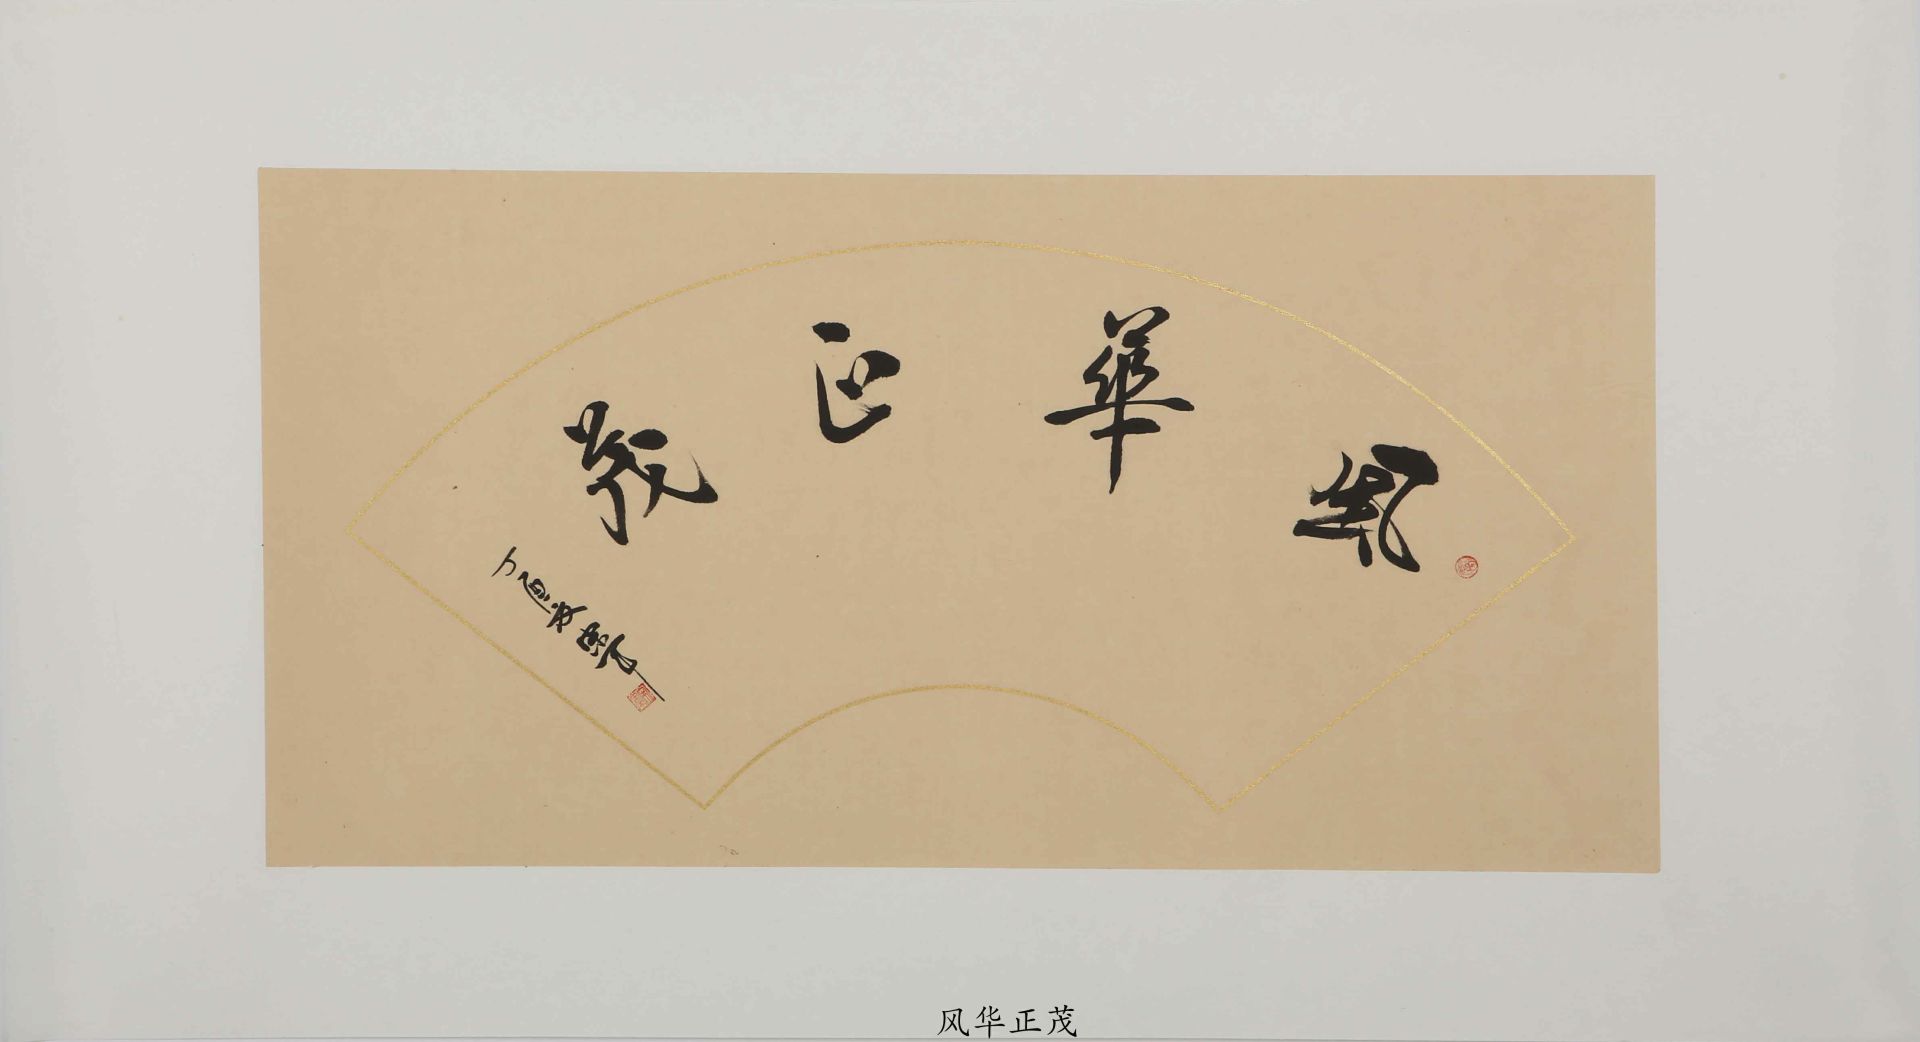 風華正茂
丁酉
风华正茂